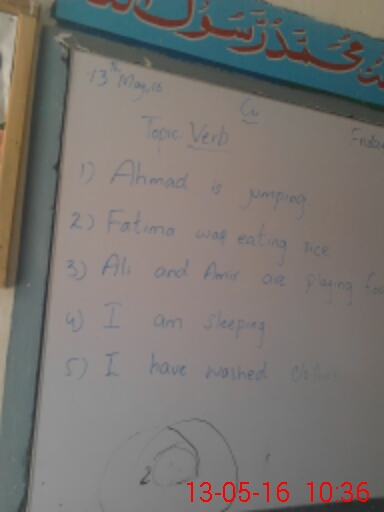 محمد رسول الله
13th May, 16
Cw
Topic: Verb
1) Ahmad is jumping
2) Fatima was eating rice
3) Ali and Amir are playing foo
4) I am sleeping
5) I have washed
2
13-05-16 10:36